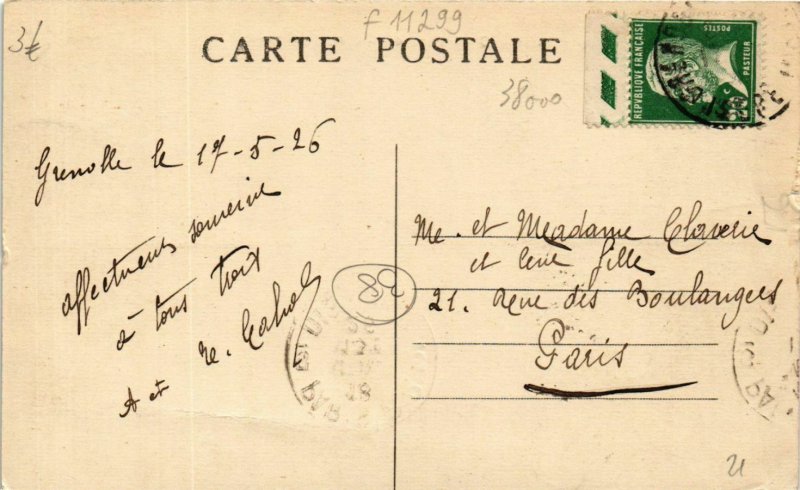 3€
F 11299
CARTE POSTALE
38000
REPVBLIQVE FRANÇAISE
POSTES
PASTEUR
Grenoble le 17-5-26
affectueux souvenir
à tous trois
A et
Me. et Meadame Claverie
et leur fille
21. Rue des Boulangers
Paris
38
21